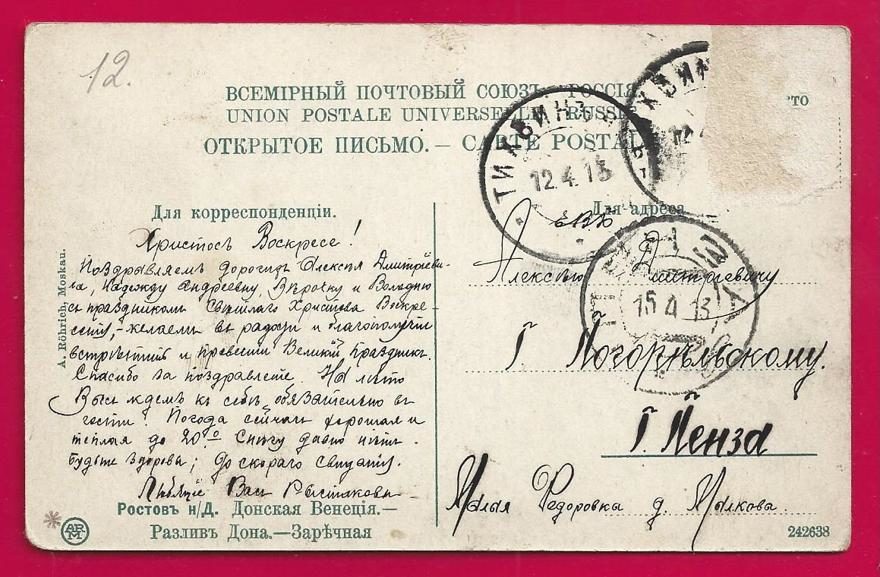 12.
ВСЕМІРНЫЙ ПОЧТОВЫЙ СОЮЗЪ. РОССІЯ
UNION POSTALE UNIVERSELLE. RUSSIE
ОТКРЫТОЕ ПИСЬМО. — CARTE POSTALE
ТИХВИНЪ
12.4.13
Для корреспонденціи.
Христосъ Воскресе!
Поздравляемъ дорогихъ Алексѣя Дмитріеви-
ча, Надежду Андреевну, Вѣрочку и Володю
съ праздникомъ Свѣтлаго Христова Воскре-
сенія, - желаемъ въ радости и благополучіи
встрѣтить и провести Великій Праздникъ.
Спасибо за поздравленіе. На лѣто
Васъ ждемъ къ себѣ обязательно въ
гости. Погода сейчасъ хорошая и
теплая до 20° Снѣгу давно нѣтъ.
Будьте здоровы; До скораго свиданія.
Любящіе Васъ
A. Röhrich, Moskau.
Ростовъ н/Д. Донская Венеція.—
Разливъ Дона.—Зарѣчная
ARM
Для адреса
ПЕНЗА
15.4.13
Его
Алексѣю Дмитріевичу
Г. Погорѣльскому.
Г. Пенза
Малая Федоровка д. Малкова.
242638